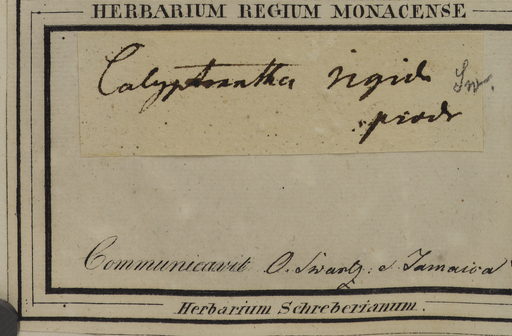 HERBARIUM REGIUM MONACENSE
Calyptranthes rigida Sw.
prodr
Communicavit O. Swartz: e Jamaica
Herbarium Schreberianum.